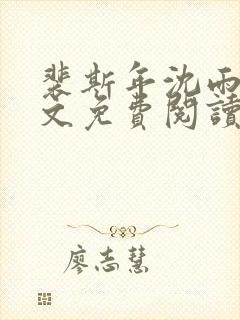 裴斯年沈雨
文免費閱讀
廖志慧